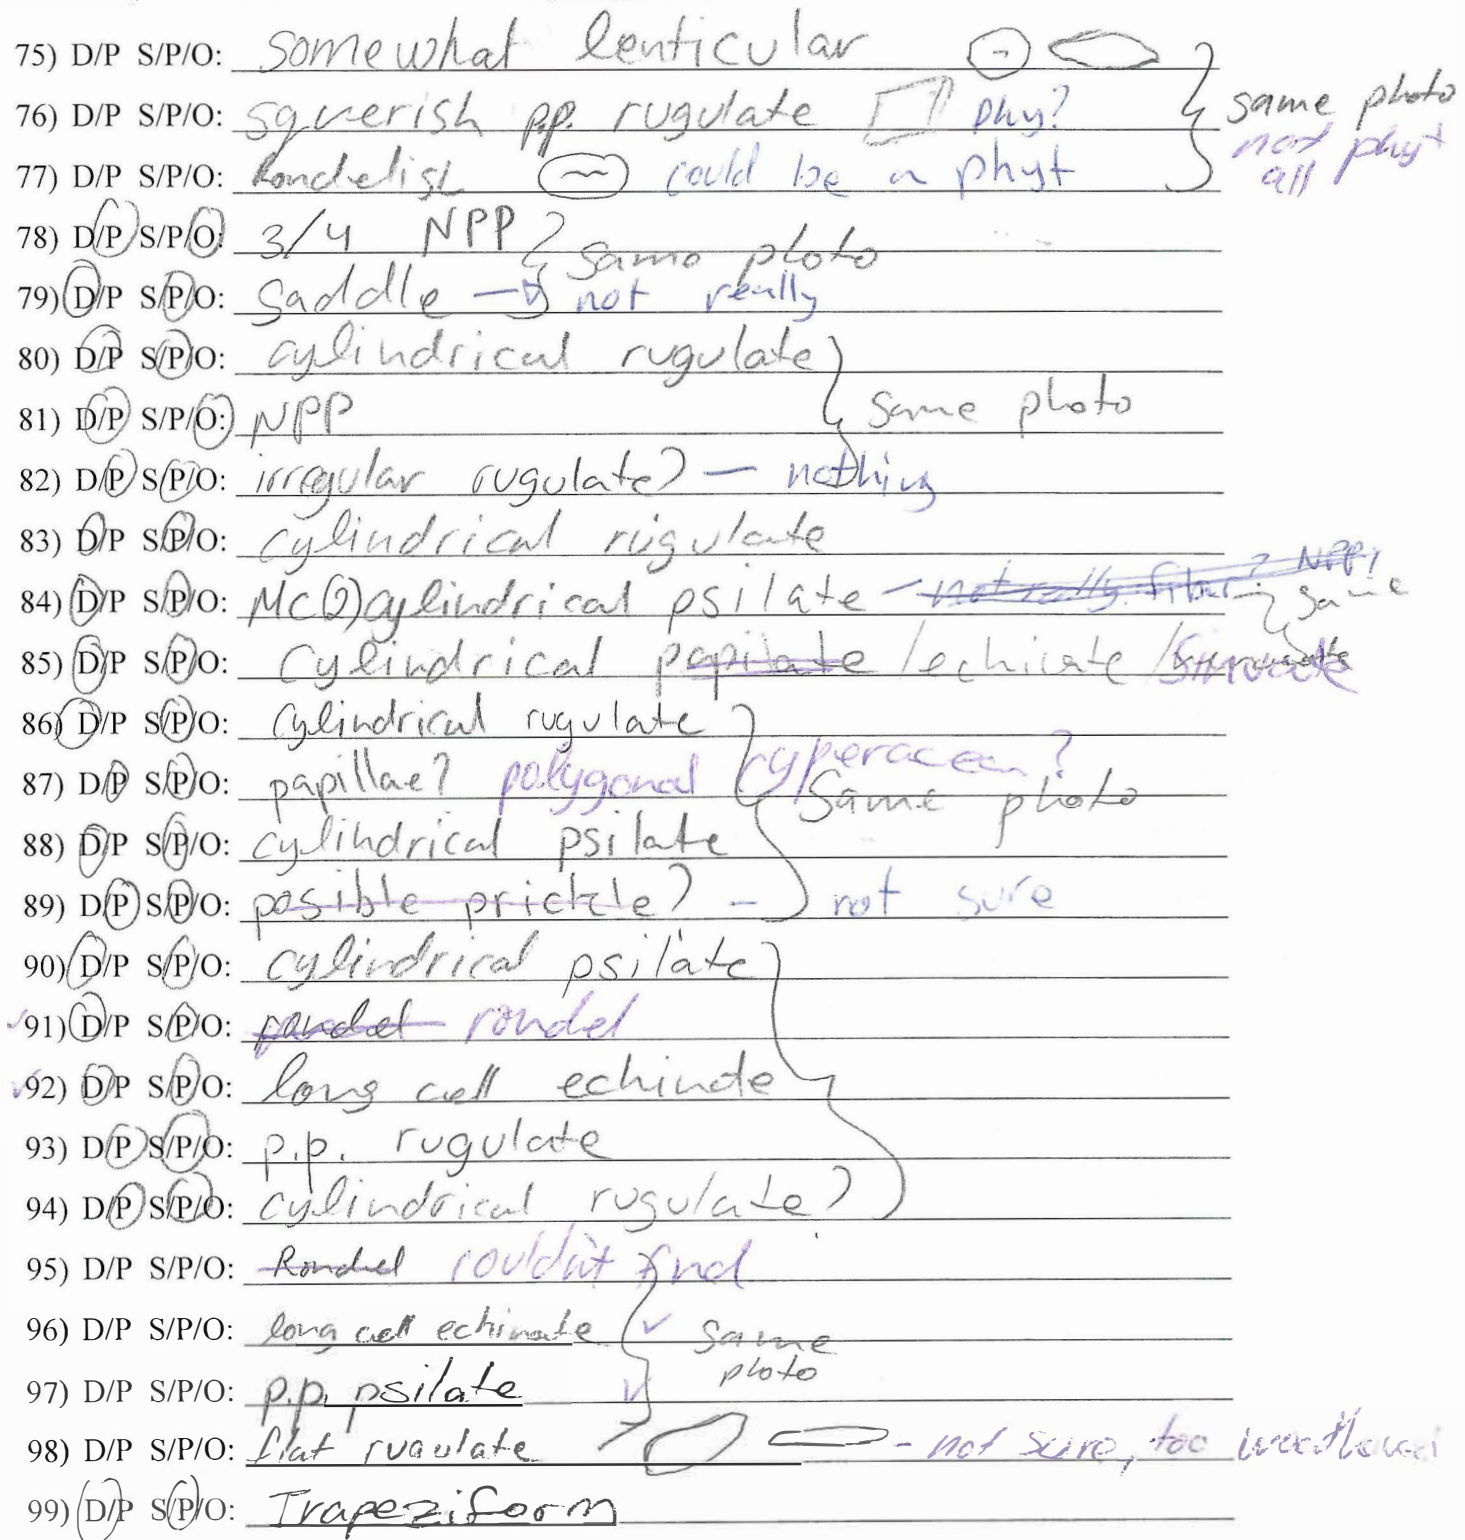 75) D/P S/P/O: somewhat lenticular
76) D/P S/P/O: squerish p.p. rugulate phy? same photo
not phyt
77) D/P S/P/O: Rondelish could be a phyt all
78) D/P S/P/O: 3/4 NPP same photo
79) D/P S/P/O: saddle → not really
80) D/P S/P/O: cylindrical rugulate
81) D/P S/P/O: NPP same photo
82) D/P S/P/O: irregular rugulate? — nothing
83) D/P S/P/O: cylindrical rugulate
84) D/P S/P/O: MC(2) cylindrical psilate - not really fiber? NPP? same
85) D/P S/P/O: Cylindrical papilate /echinate / Sinuate
86) D/P S/P/O: cylindrical rugulate
87) D/P S/P/O: papillae? polygonal cyperaceen? same photo
88) D/P S/P/O: cylindrical psilate
89) D/P S/P/O: posible prickle? - not sure
90) D/P S/P/O: cylindrical psilate
91) D/P S/P/O: rondel rondel
92) D/P S/P/O: long cell echinate
93) D/P S/P/O: p.p. rugulate
94) D/P S/P/O: cylindrical rugulate?
95) D/P S/P/O: Rondel couldn't find
96) D/P S/P/O: long cell echinate same
photo
97) D/P S/P/O: p.p. psilate
98) D/P S/P/O: flat rugulate - not sure, too weathered
99) D/P S/P/O: Trapeziform